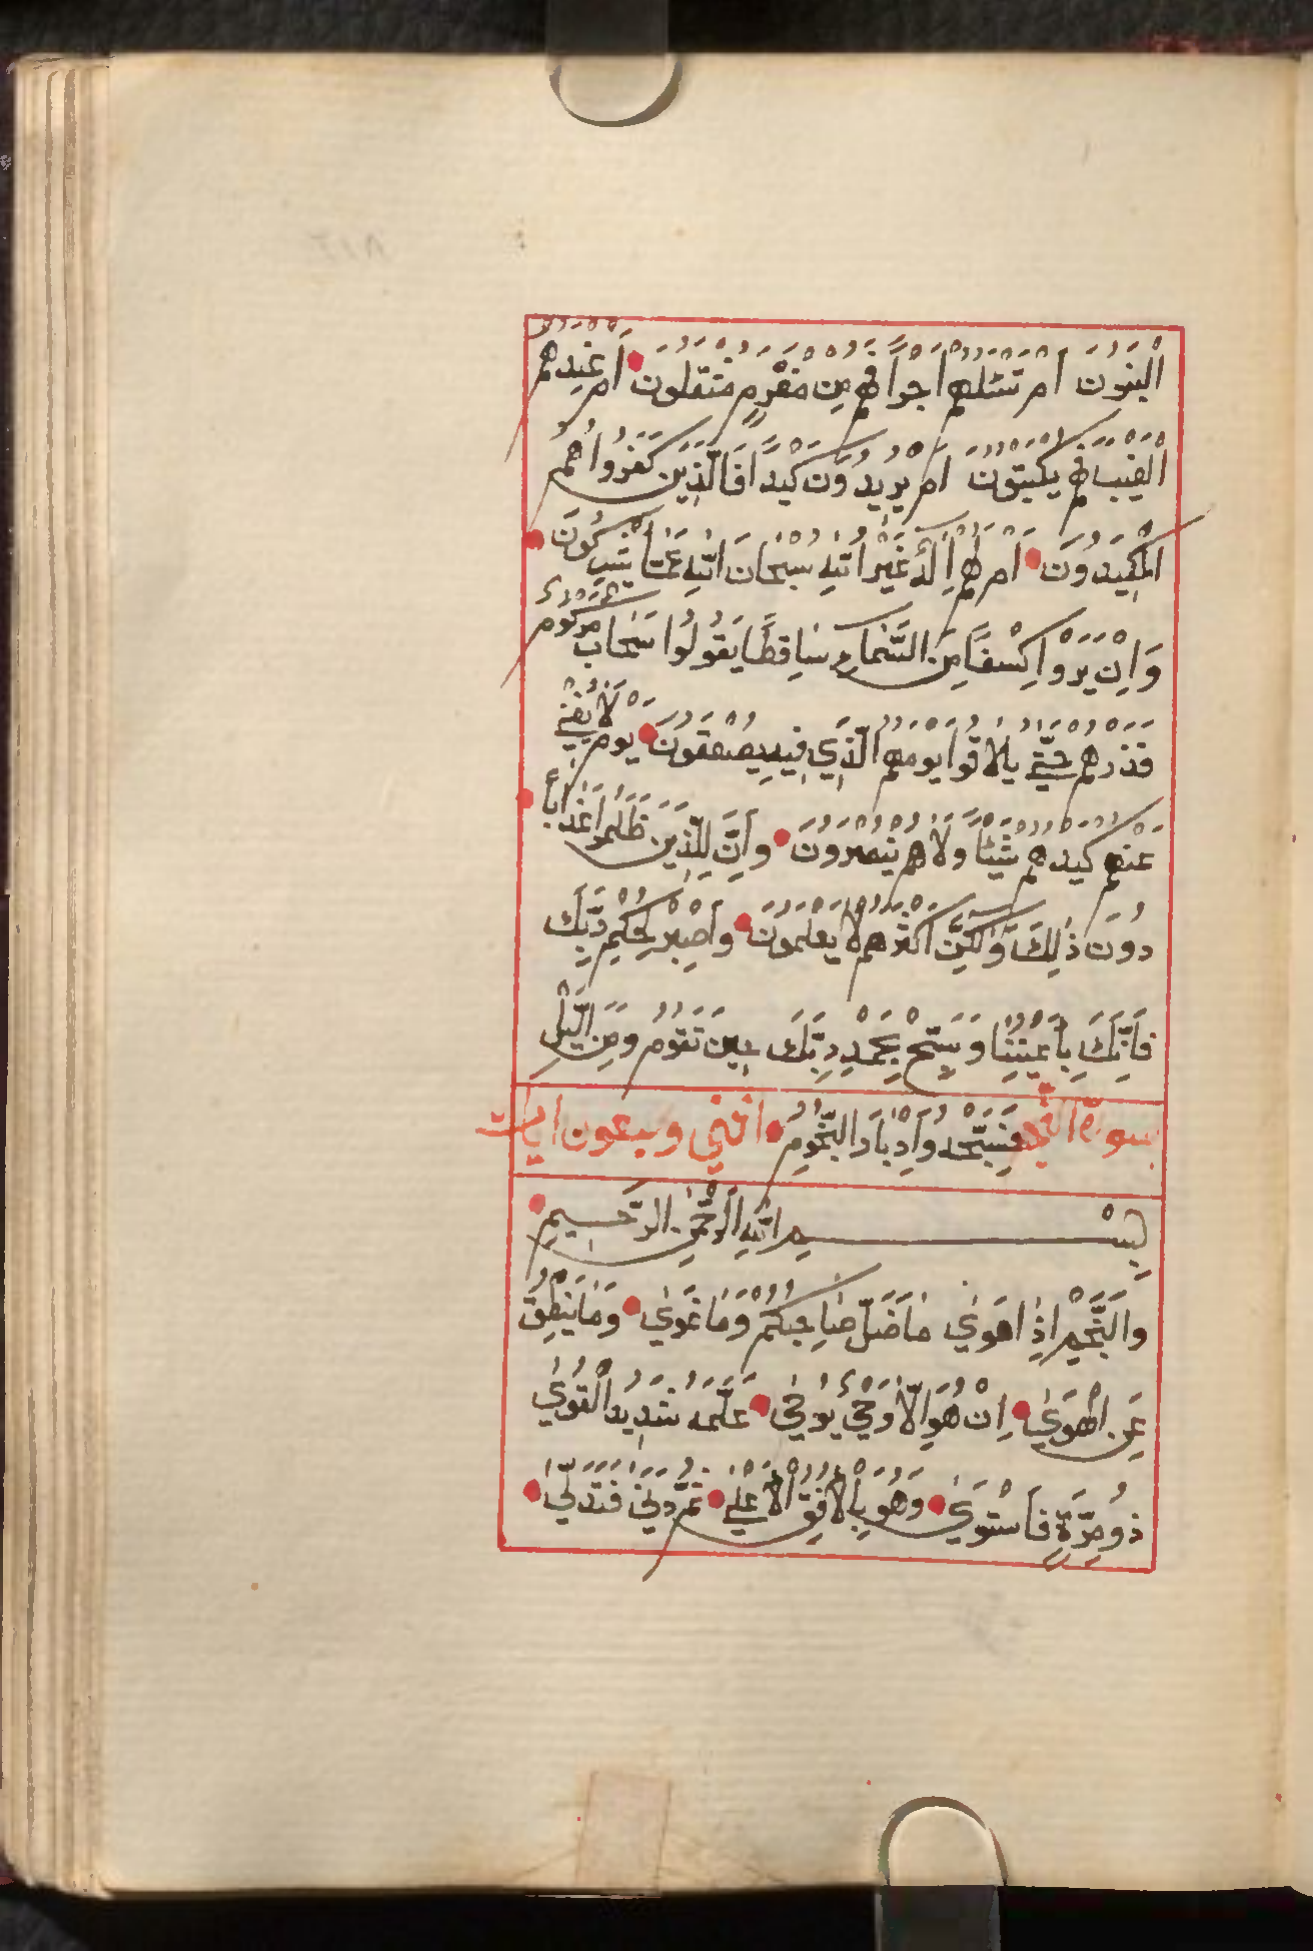 الْبَنُونَ اَمْ تَسْئَلُهُمْ اَجْرًا فَهُمْ مِنْ مَغْرَمٍ مُثْقَلُونَ اَمْ عِنْدَهُمُ
الْغَيْبُ فَهُمْ يَكْتُبُونَ اَمْ يُرِيدُونَ كَيْدًا فَالَّذِينَ كَفَرُوا هُمُ
الْمَكِيدُونَ اَمْ لَهُمْ اِلٰهٌ غَيْرُ اللّٰهِ سُبْحَانَ اللّٰهِ عَمَّا يُشْرِكُونَ
وَاِنْ يَرَوْا كِسْفًا مِنَ السَّمَاءِ سَاقِطًا يَقُولُوا سَحَابٌ مَرْكُومٌ
فَذَرْهُمْ حَتّٰى يُلَاقُوا يَوْمَهُمُ الَّذِي فِيهِ يُصْعَقُونَ يَوْمَ لَا يُغْنِي
عَنْهُمْ كَيْدُهُمْ شَيْئًا وَلَا هُمْ يُنْصَرُونَ وَاِنَّ لِلَّذِينَ ظَلَمُوا عَذَابًا
دُونَ ذٰلِكَ وَلٰكِنَّ اَكْثَرَهُمْ لَا يَعْلَمُونَ وَاصْبِرْ لِحُكْمِ رَبِّكَ
فَاِنَّكَ بِاَعْيُنِنَا وَسَبِّحْ بِحَمْدِ رَبِّكَ حِينَ تَقُومُ وَمِنَ الَّيْلِ
سورة النجم فَسَبِّحْهُ وَاِدْبَارَ النُّجُومِ اثنى وسبعون ايات
بِسْمِ اللّٰهِ الرَّحْمٰنِ الرَّحِيمِ
وَالنَّجْمِ اِذَا هَوٰى مَا ضَلَّ صَاحِبُكُمْ وَمَا غَوٰى وَمَا يَنْطِقُ
عَنِ الْهَوٰى اِنْ هُوَ اِلَّا وَحْيٌ يُوحٰى عَلَّمَهُ شَدِيدُ الْقُوٰى
ذُو مِرَّةٍ فَاسْتَوٰى وَهُوَ بِالْاُفُقِ الْاَعْلٰى ثُمَّ دَنٰى فَتَدَلّٰى